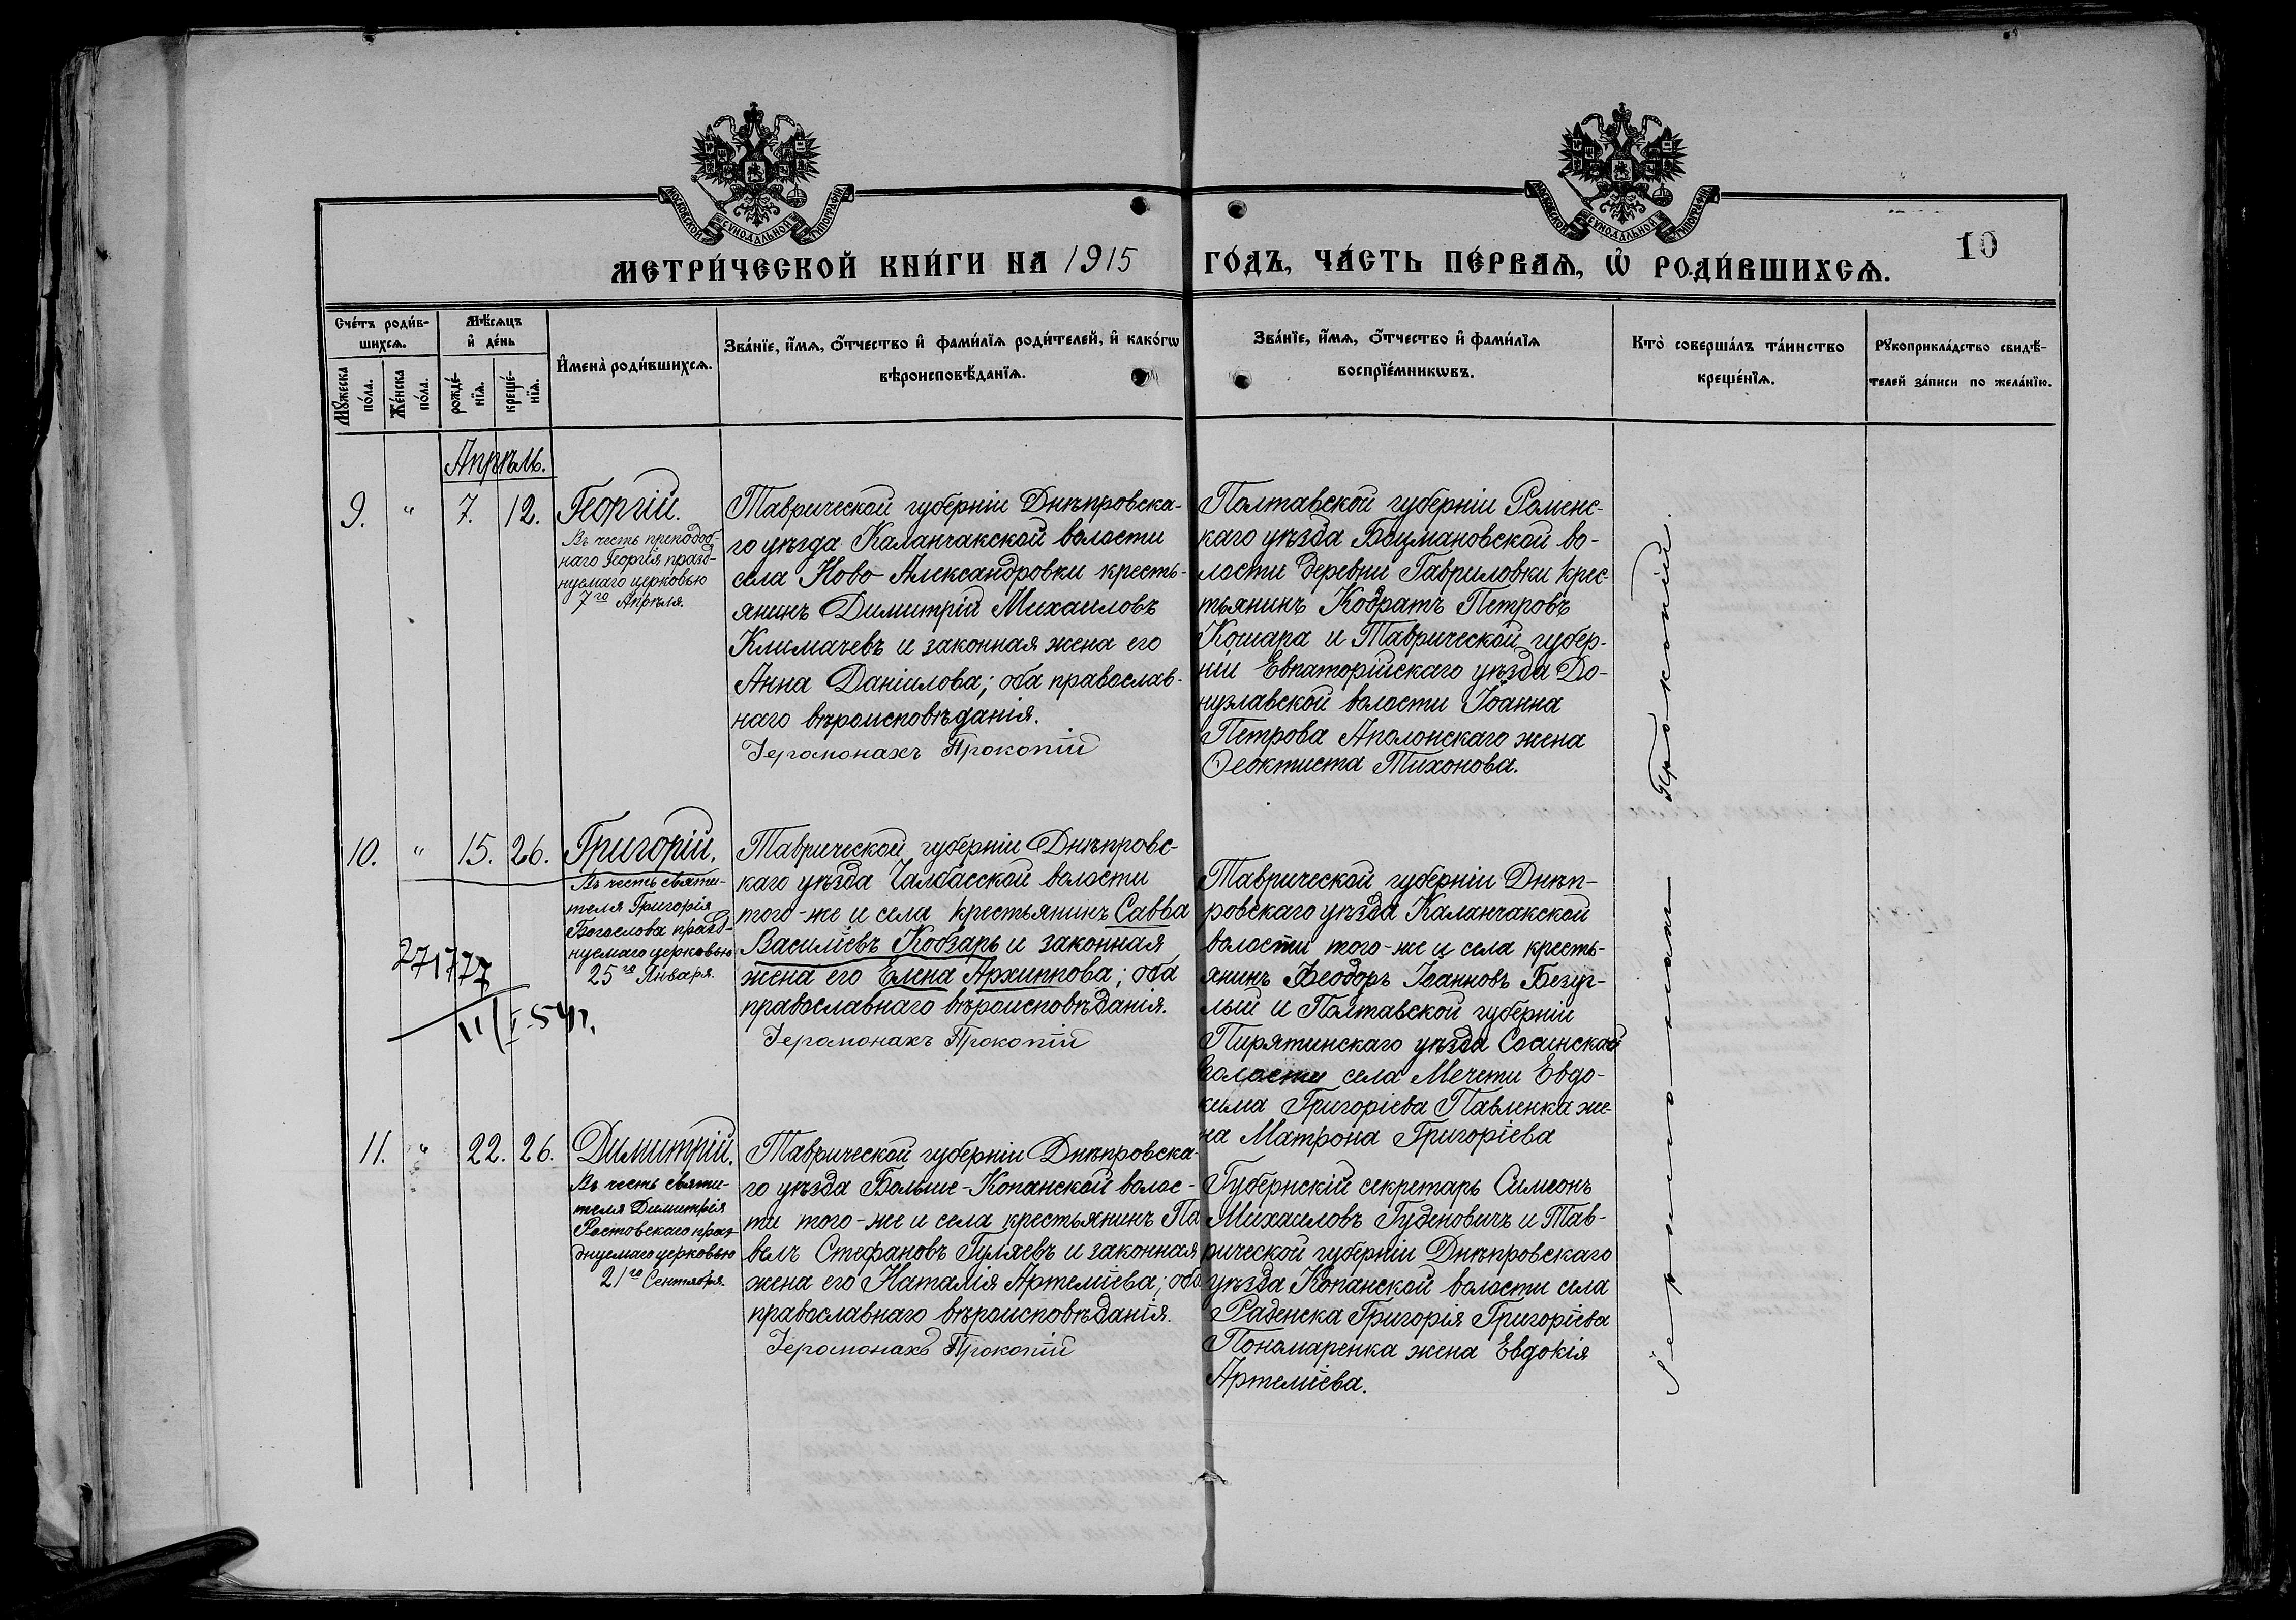 МОСКОВСКОЙ СУНОДАЛЬНОЙ ТИПОГРАФІИ
МОСКОВСКОЙ СУНОДАЛЬНОЙ ТИПОГРАФІИ
МЕТРИ́ЧЕСКОЙ КНИ́ГИ НА 1915 ГО́ДЪ, ЧА́СТЬ ПЕ́РВАѦ, Ѡ҆ РОДИ́ВШИХСѦ.
10
Сче́тъ роди́в-
шихсѧ.
Мꙋ́жеска
по́ла.
Же́нска
по́ла.
Мѣ́сѧцъ
и҆ де́нь
рожде́-
нїѧ.
креще́-
нїѧ.
И҆мена̀ роди́вшихсѧ.
Зва́нїе, и҆́мѧ, ѻ҆́тчество и҆ фами́лїѧ роди́телей, и҆ како́гѡ
вѣроисповѣ́данїѧ.
Зва́нїе, и҆́мѧ, ѻ҆́тчество и҆ фами́лїѧ
воспрїе́мникѡвъ.
Кто̀ соверша́лъ та́инство
креще́нїѧ.
Рꙋкоприкла́дство свидѣ́-
телей за́писи по жела́нїю.
Апрѣль.
9. " 7. 12.
Георгій.
Въ честь преподоб-
наго Георгія празд-
нуемаго церковью
7го Апрѣля.
Таврической губерніи Днѣпровска-
го уѣзда Каланчакской волости
села Ново-Александровки кресть-
янинъ Димитрій Михаиловъ
Климачевъ и законная жена его
Анна Даніилова; оба православ-
наго вѣроисповѣданія.
Іеромонахъ Прокопій
Полтавской губерніи Роменс-
каго уѣзда Боцмановской во-
лости деревни Гавриловки крес-
тьянинъ Кодратъ Петровъ
Кошара и Таврической губер-
ніи Евпаторійскаго уѣзда До-
нузлавской волости Іоанна
Петрова Аполонскаго жена
Ѳеоктиста Тихонова.
10. " 15. 26.
Григорій.
Въ честь святи-
теля Григорія
Богослова празд-
нуемаго церковью
25го Января.
271777
11/I-54г.
Таврической губерніи Днѣпровс-
каго уѣзда Чалбасской волости
того-же и села крестьянинъ Савва
Василіевъ Кобзарь и законная
жена его Елена Архиппова; оба
православнаго вѣроисповѣданія.
Іеромонахъ Прокопій
Таврической губерніи Днѣп-
ровскаго уѣзда Каланчакской
волости того-же и села кресть-
янинъ Ѳеодоръ Іоанновъ Безуг-
лый и Полтавской губерніи
Пирятинскаго уѣзда
волости села Мечети Евдо-
кима Григоріева Павленка же-
на Матрона Григоріева
11. " 22. 26.
Димитрій.
Въ честь святи-
теля Димитрія
Ростовскаго праз-
днуемаго церковью
21го Сентября.
Таврической губерніи Днѣпровска-
го уѣзда Больше-Копанской волос-
ти того-же и села крестьянинъ Па
велъ Стефановъ Гуляевъ и законная
жена его Наталія Артеміева; оба
православнаго вѣроисповѣданія.
Іеромонахъ Прокопій
Губернскій секретарь Симеонъ
Михаиловъ Гуденовичъ и Тав-
рической губерніи Днѣпровскаго
уѣзда Копанской волости села
Раденска Григорія Григоріева
Пономаренка жена Евдокія
Артеміева.
Іеромонахъ Прокопій